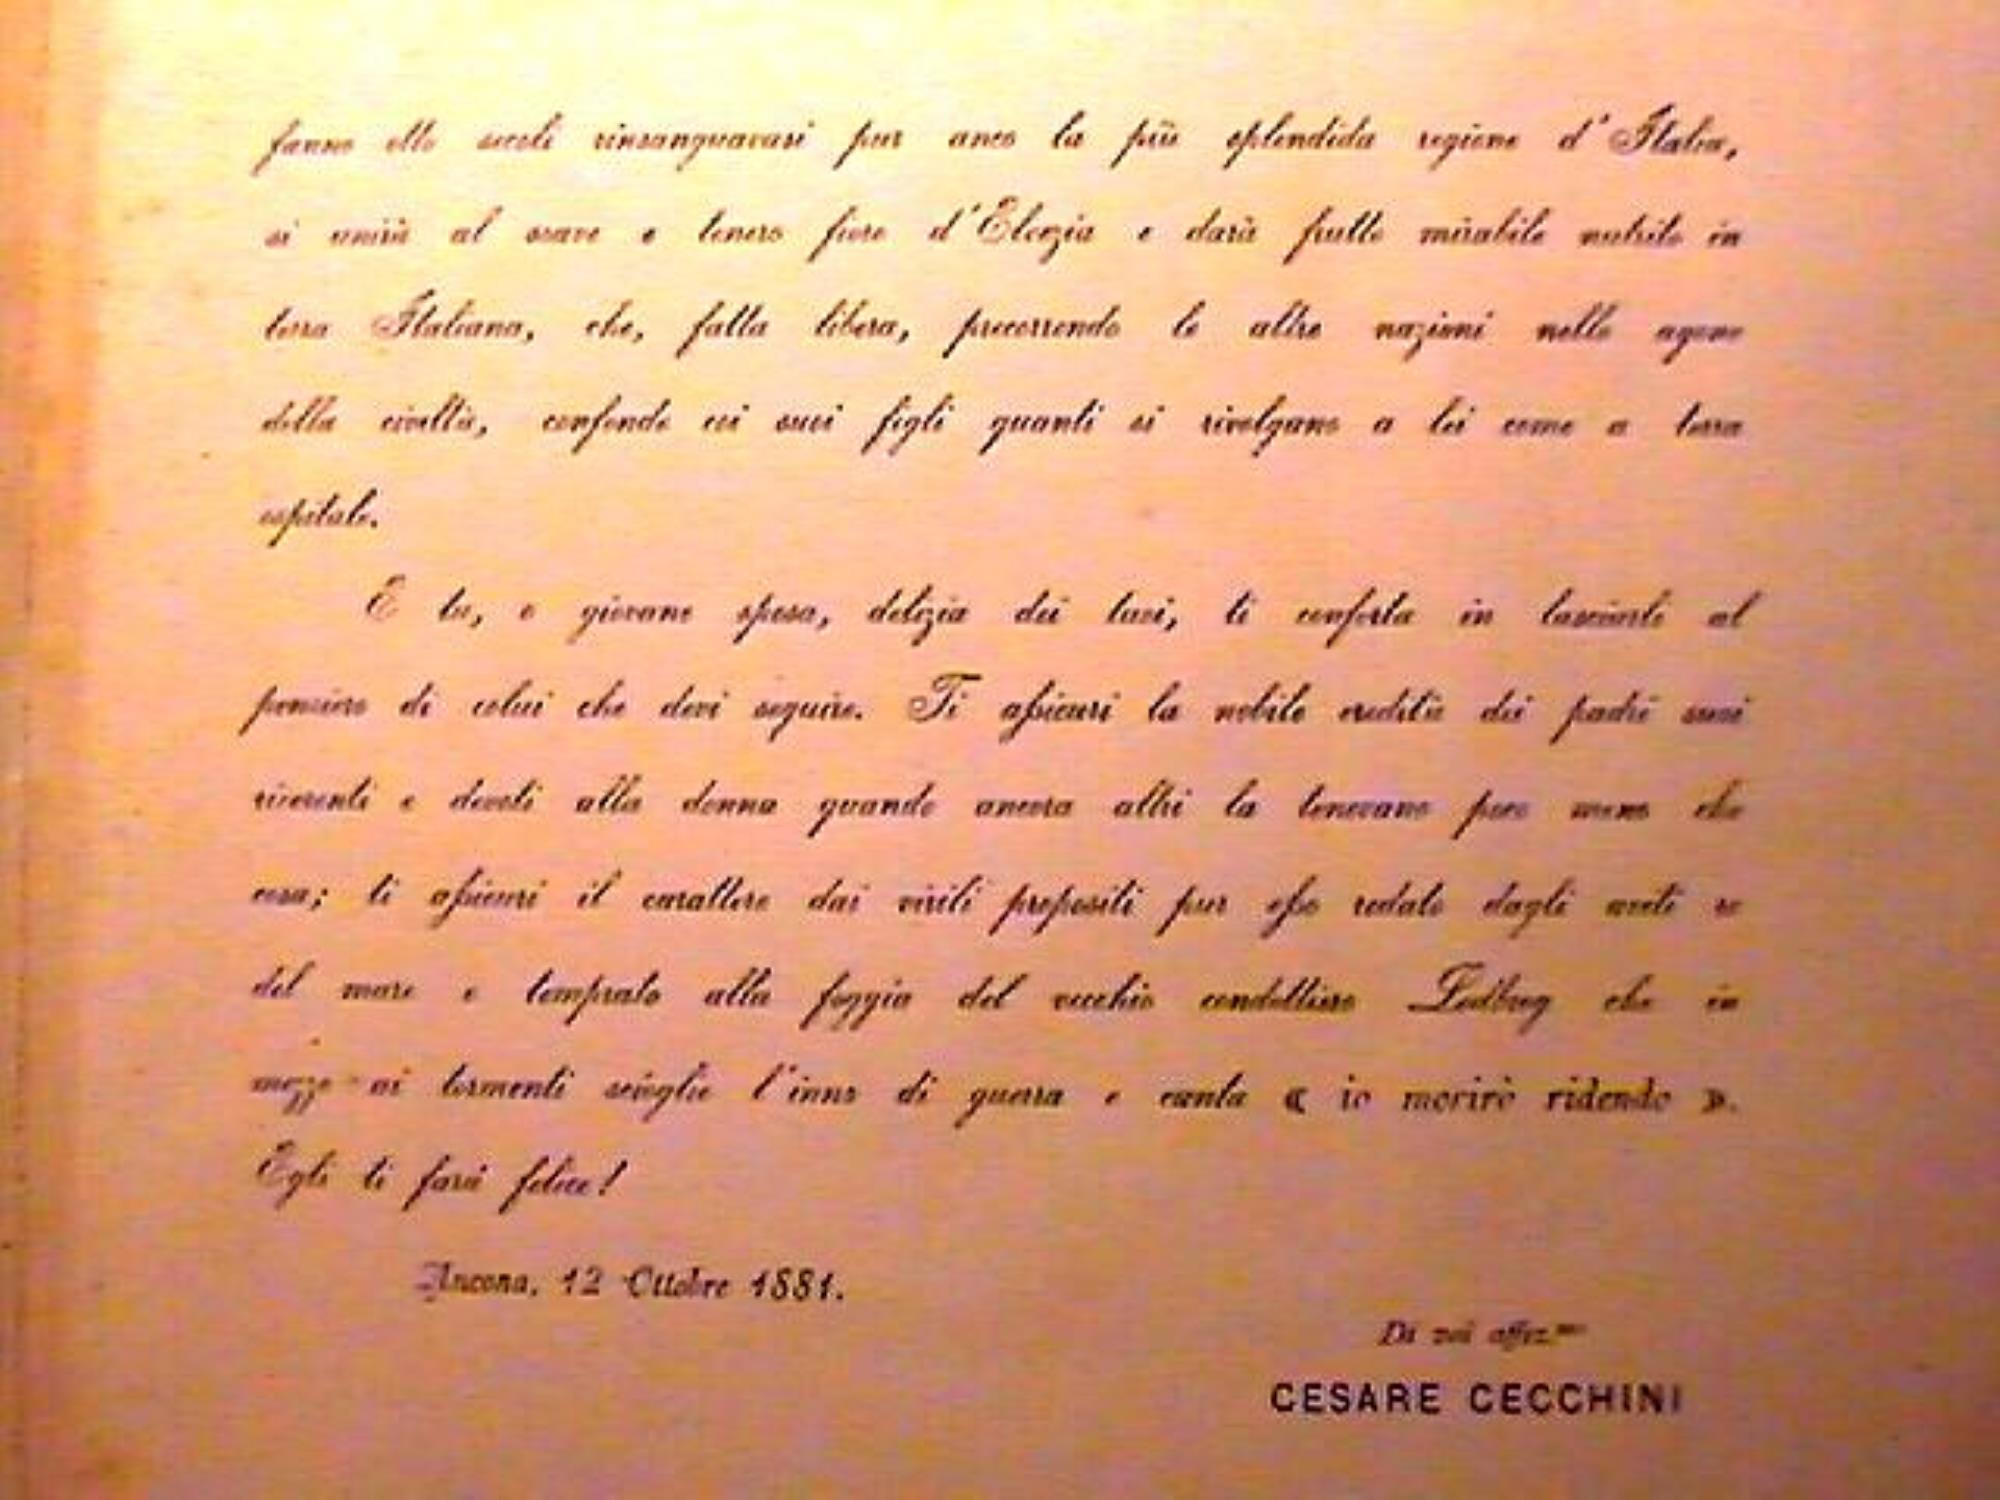 fanno otto secoli rinsanguavasi pur anco la più splendida regione d'Italia,
si unirà al soave e tenero fiore d'Elvezia e darà frutto mirabile nutrito in
terra Italiana, che, fatta libera, precorrendo le altre nazioni nello agone
della civiltà, confonde coi suoi figli quanti si rivolgano a lei come a terra
ospitale.
E tu, o giovane sposa, delizia dei tuoi, ti conforta in lasciarli al
pensiero di colui che devi seguire. Ti assicuri la nobile eredità dei padri suoi
riverenti e devoti alla donna quando ancora altri la tenevano poco meno che
cosa; ti assicuri il carattere dai virili propositi pur esso redato dagli aviti re
del mare e temprato alla foggia del vecchio condottiero Lodbrog che in
mezzo ai tormenti scioglie l'inno di guerra e canta « io morirò ridendo ».
Egli ti farà felice!
Ancona, 12 Ottobre 1881.
Di voi affez.mo
CESARE CECCHINI